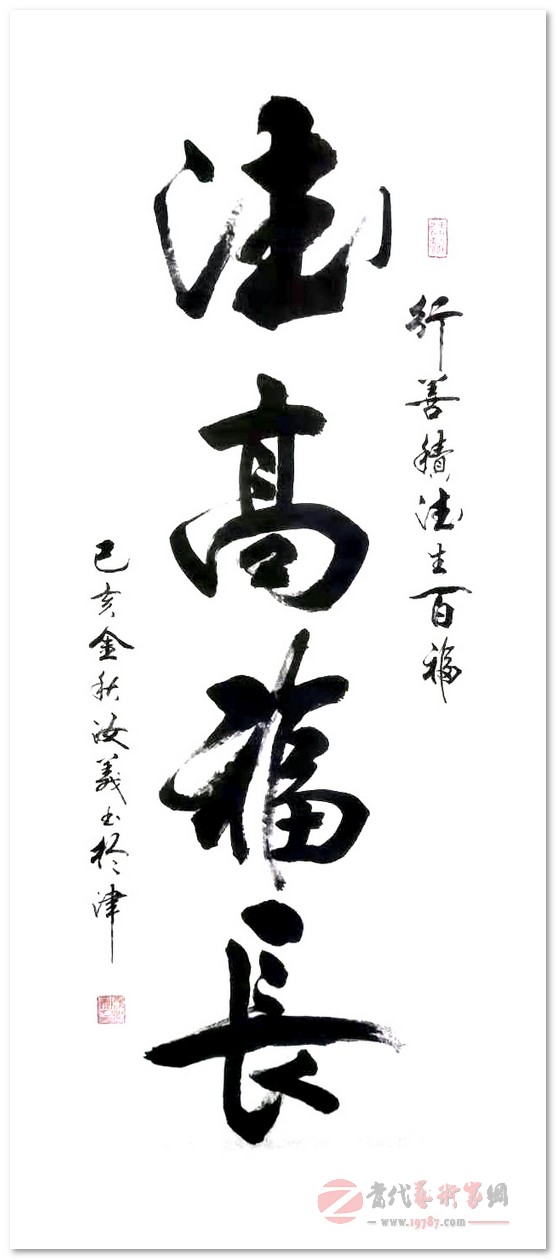 行善積德生百福
德高福長
己亥金秋汝義書於津
當代藝術家網
www.19787.com